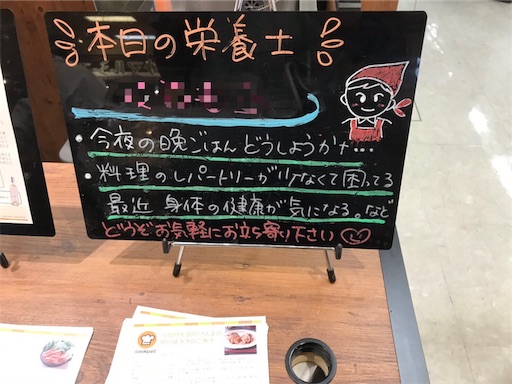 本日の栄養士
今夜の晩ごはんどうしようかナ…
料理のレパートリーが少なくて困ってる
最近 身体の健康が気になる。など
どうぞお気軽にお立ち寄り下さい
cookpad